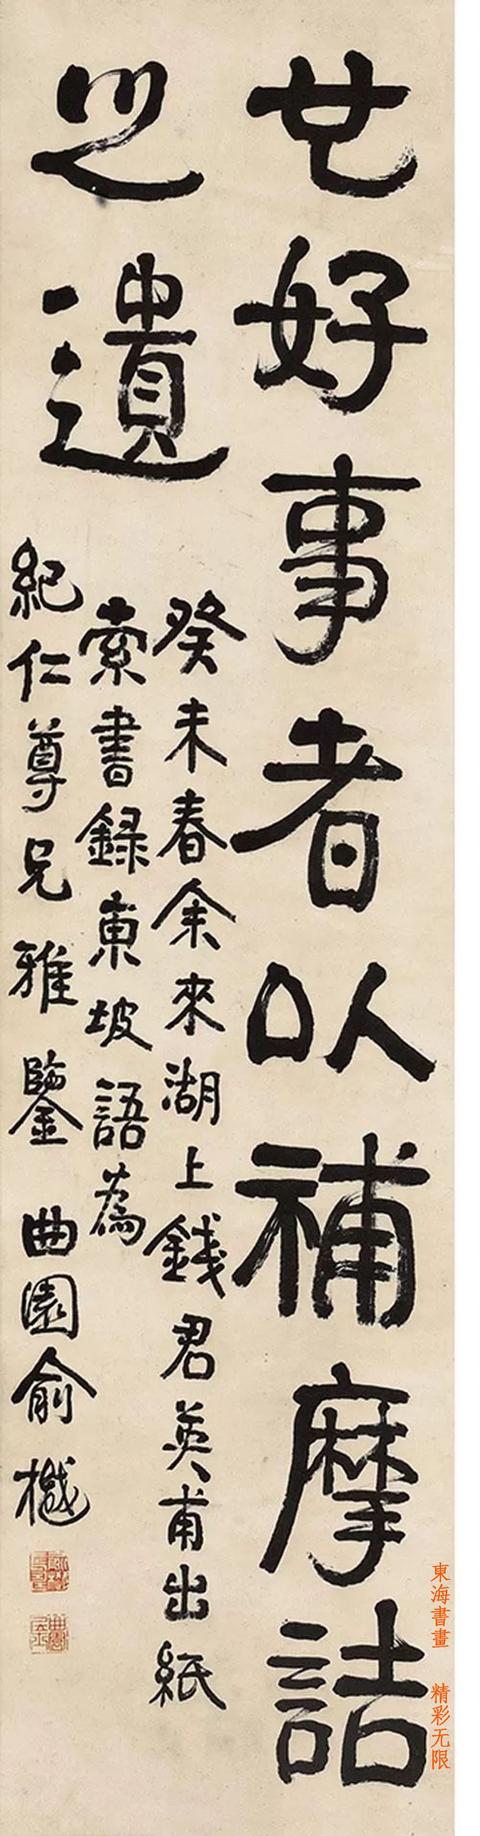 世好事者以補摩詰
之遺
癸未春余來湖上錢君英甫出紙
索書錄東坡語為
紀仁尊兄雅鑒 曲園俞樾
東海書畫 精彩无限